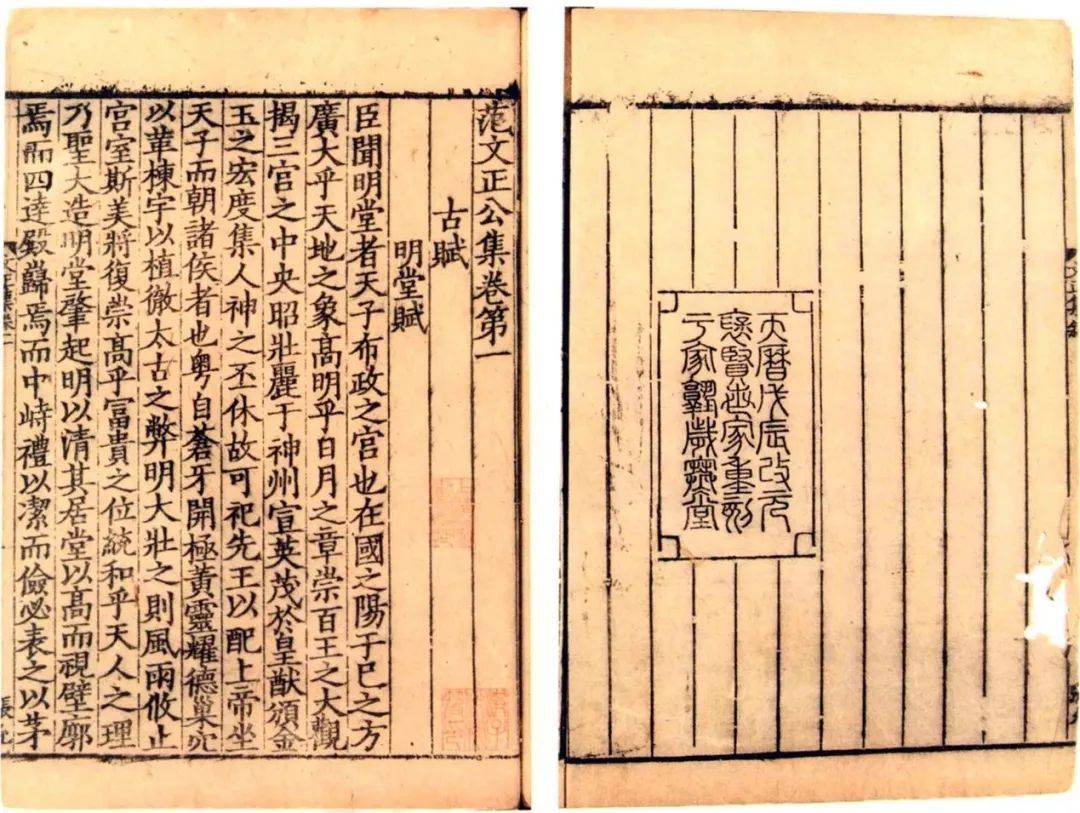 天曆戊辰改元
褒賢世家重刻
于家塾歲寒堂
范文正公集卷第一
古賦
明堂賦
臣聞明堂者天子布政之宮也在國之陽于巳之方
廣大乎天地之象高明乎日月之章崇百王之大觀
揭三宮之中央昭壯麗于神州宣英茂於皇猷頒金
玉之宏度集人神之丕休故可祀先王以配上帝坐
天子而朝諸侯者也粵自蒼牙開極黃靈耀德巢穴
以革棟宇以植徹太古之弊明大壯之則風雨攸止
宮室斯美將復崇高乎富貴之位統和乎天人之理
乃聖大造明堂肇起明以清其居堂以高而視壁廓
焉而四達殿巋焉而中峙禮以潔而儉必表之以茅